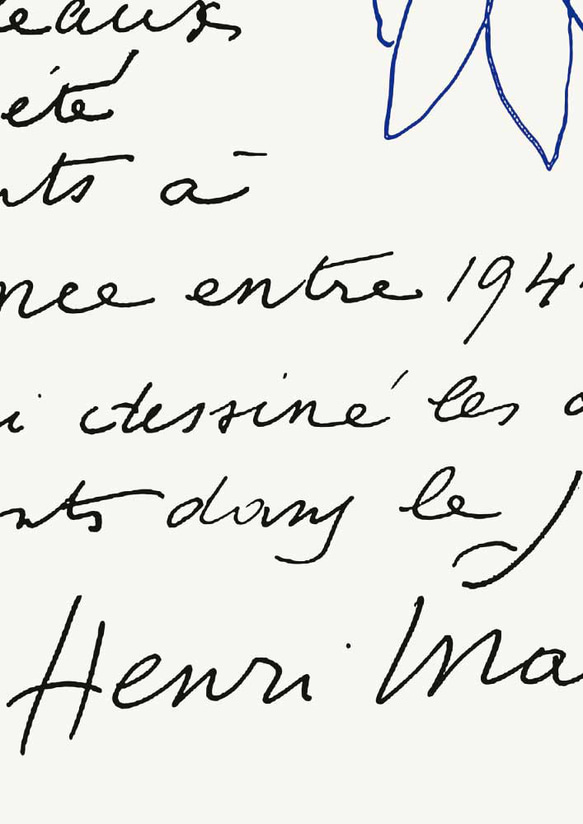 eaux
été
nts à
nce entre 194
i dessiné les
nts dans le
Henri Ma